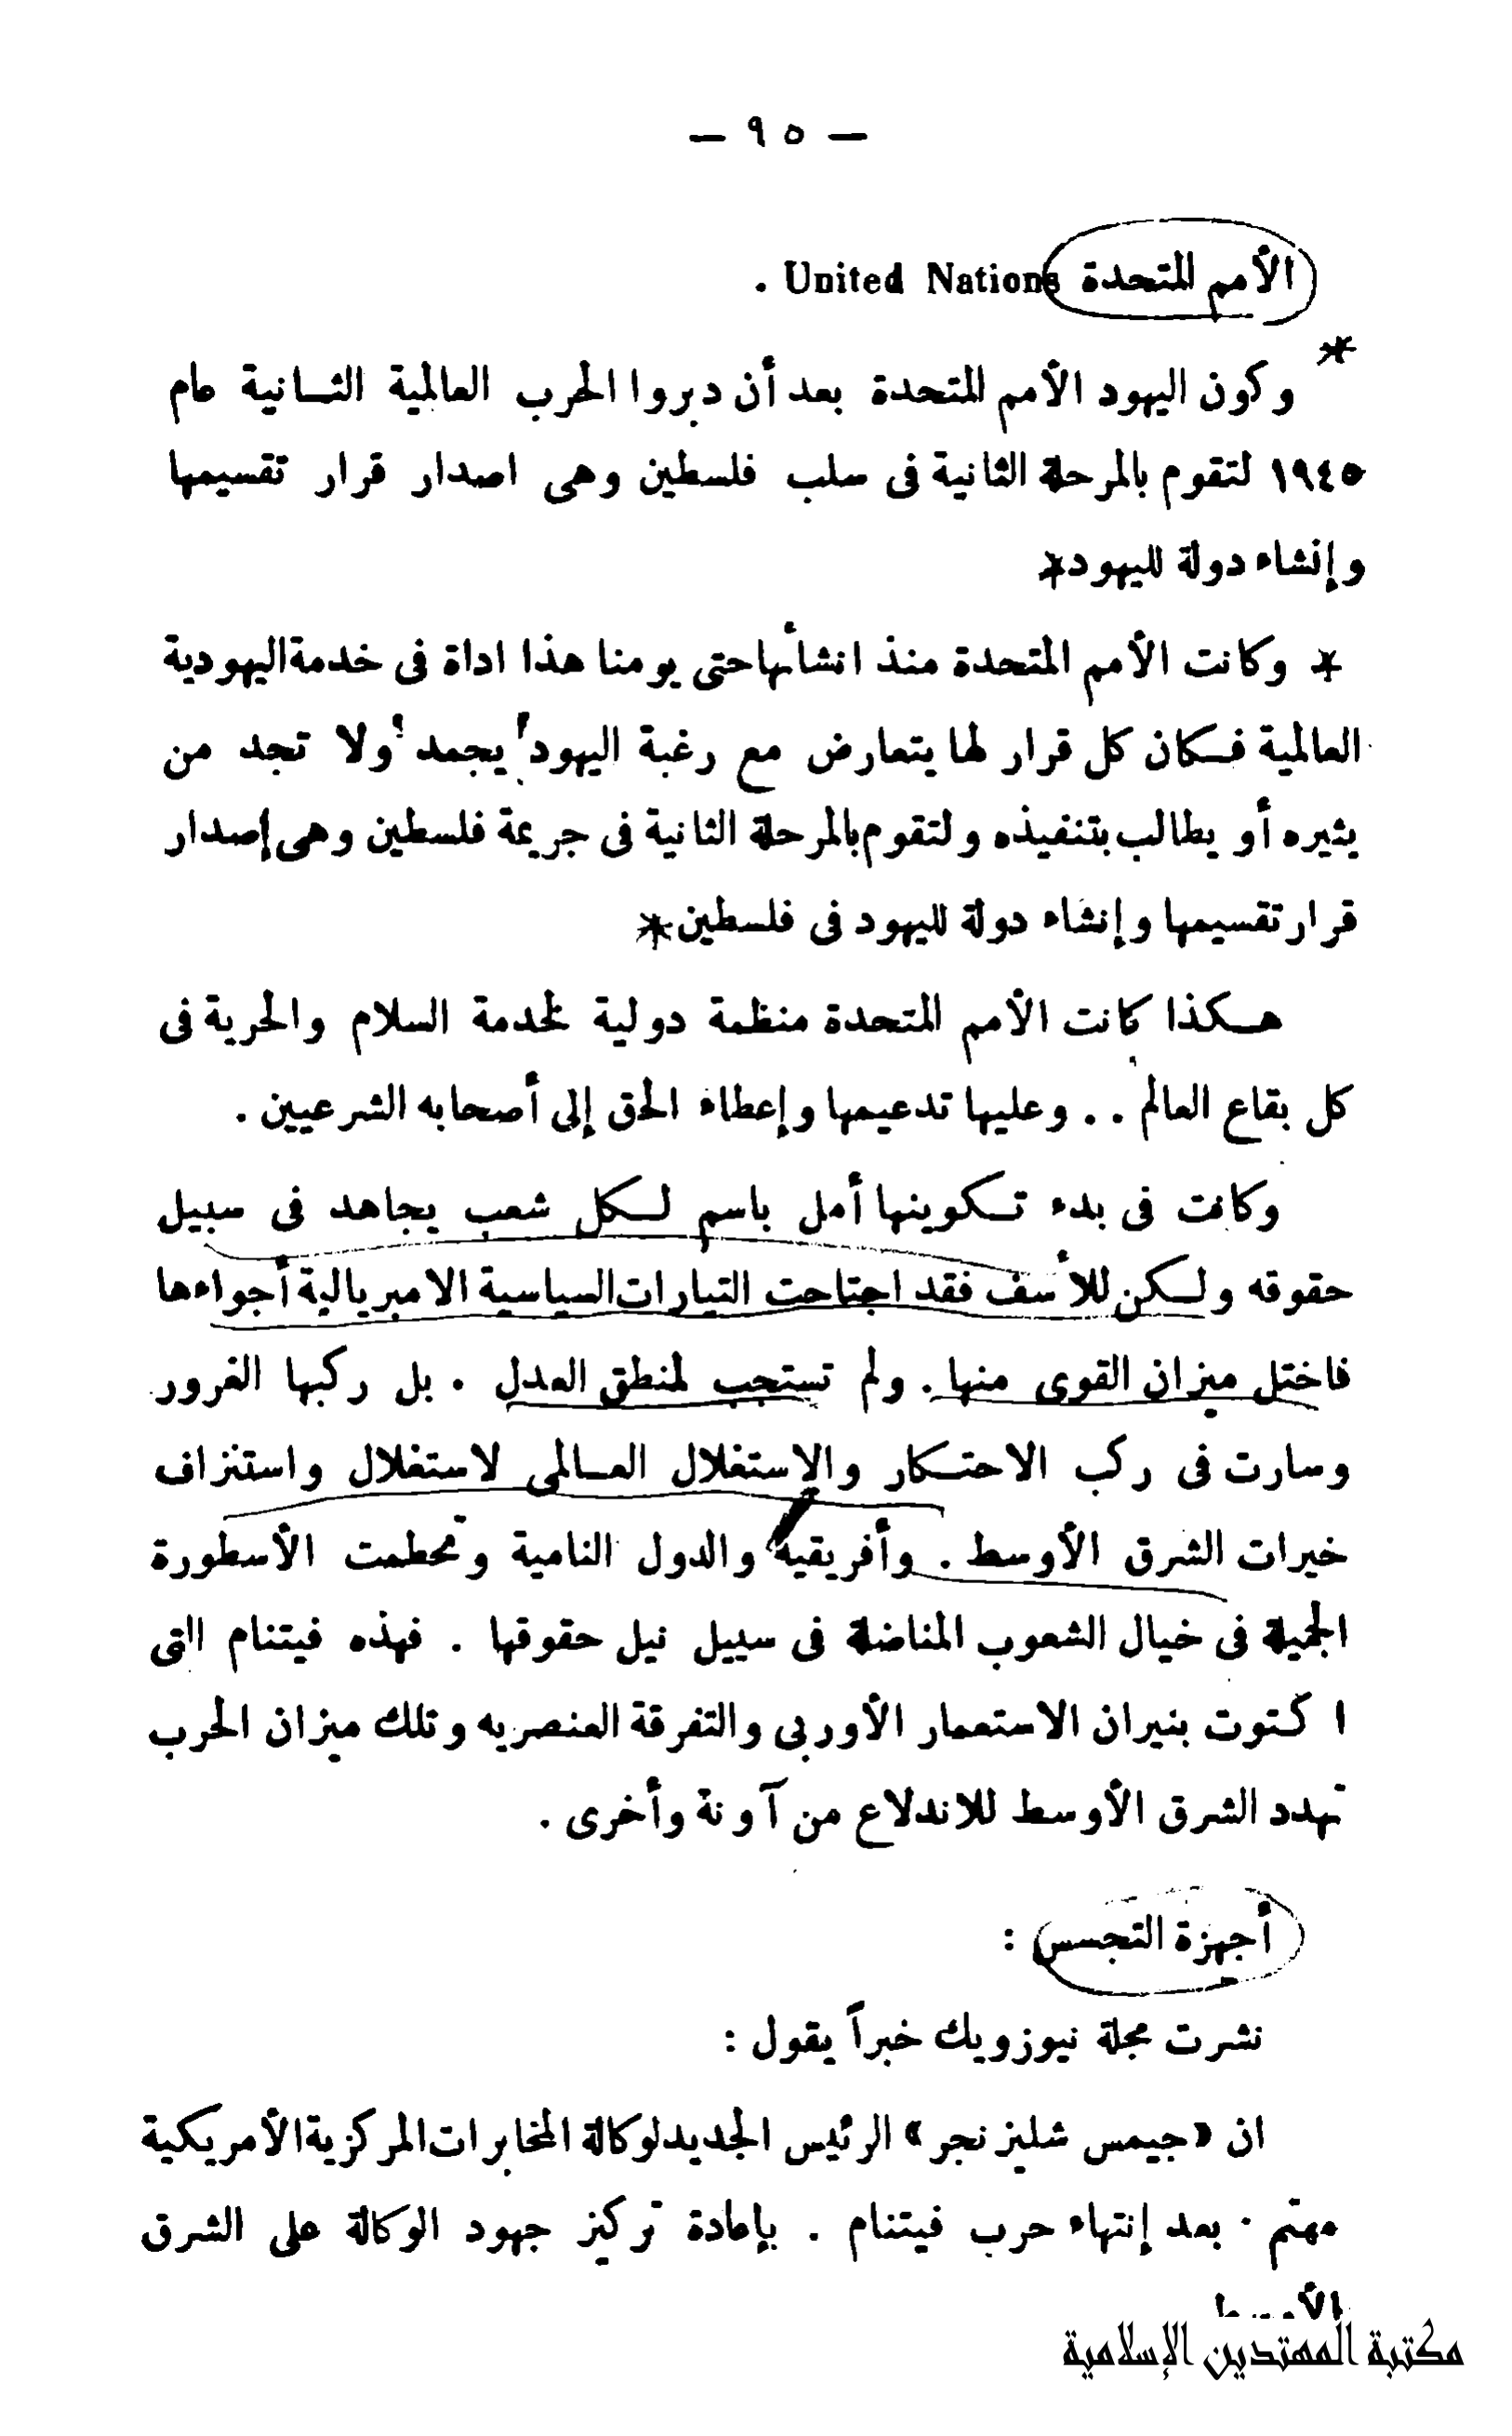 — ٩٥ —
الأمم المتحدة United Nations .
وكون اليهود الأمم المتحدة بعد أن دبروا الحرب العالمية الثانية عام
١٩٤٥ لتقوم بالمرحلة الثانية فى سلب فلسطين وهى اصدار قرار تقسيمها
وإنشاء دولة لليهود*
* وكانت الأمم المتحدة منذ انشأتها حتى يومنا هذا اداة فى خدمة اليهودية
العالمية فكان كل قرار لها يتعارض مع رغبة اليهود يجمد ولا تجد من
يثيره أو يطالب بتنفيذه ولتقوم بالمرحلة الثانية فى جريمة فلسطين وهى إصدار
قرار تقسيمها وإنشاء دولة لليهود فى فلسطين*
هكذا كانت الأمم المتحدة منظمة دولية لخدمة السلام والحرية فى
كل بقاع العالم . . وعليها تدعيمها وإعطاء الحق إلى أصحابه الشرعيين .
وكانت فى بدء تكوينها أمل باسم لكل شعب يجاهد فى سبيل
حقوقه ولكن للأسف فقد اجتاحت التيارات السياسية الامبريالية أجواءها
فاختل ميزان القوى منها . ولم تستجب لمنطق العدل . بل ركبها الغرور
وسارت فى ركب الاحتكار والإستغلال العالمى لاستغلال واستنزاف
خيرات الشرق الأوسط . وأفريقية والدول النامية وتحطمت الأسطورة
الجميلة فى خيال الشعوب المناضلة فى سبيل نيل حقوقها . فهذه فيتنام التى
اكتوت بنيران الاستعمار الأوربى والتفرقة العنصريه وتلك ميزان الحرب
تهدد الشرق الأوسط للاندلاع من آونة وأخرى .
أجهزة التجسس :
نشرت مجلة نيوزويك خبراً يقول :
ان «جيمس شليزنجر» الرئيس الجديد لوكالة المخابرات المركزية الأمريكية
مهتم . بعد إنتهاء حرب فيتنام . بإعادة تركيز جهود الوكالة على الشرق
الأوسط
مكتبة المهتدين الإسلامية